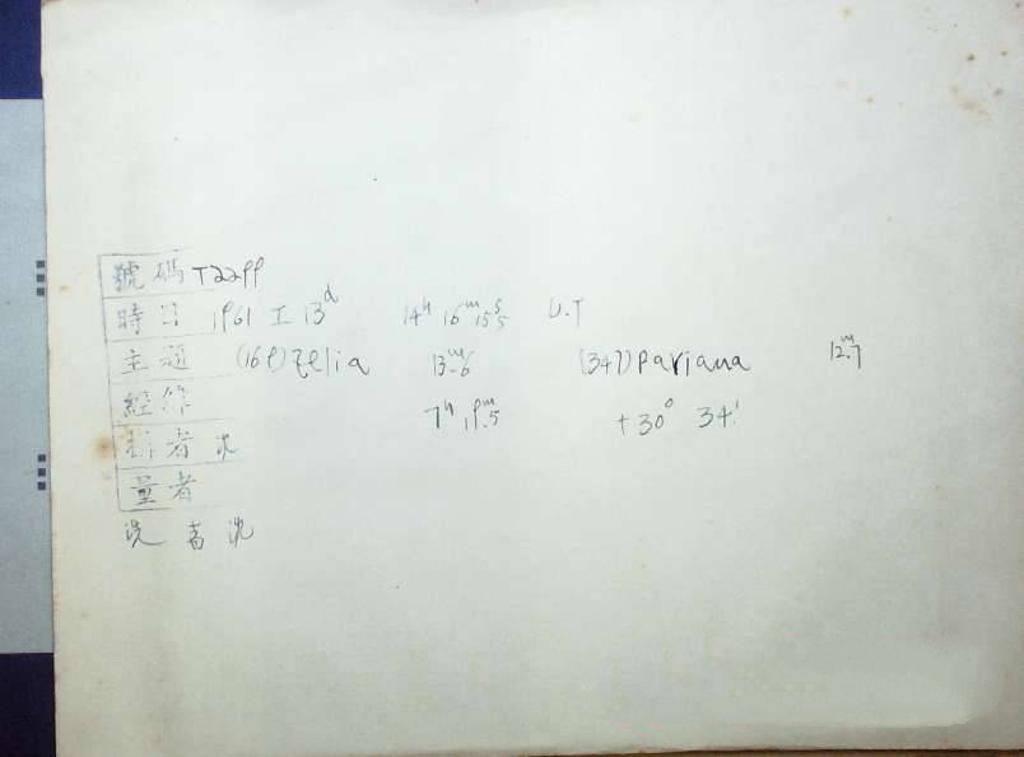 號碼 T2299
時日 1961 I 13d 14h 16m 15s.5 U.T
主題 (169) Zelia 13m.6 (347) Pariana 12m.7
經緯 7h 19m.5 +30° 34'
者 沈
量者
洗者 沈